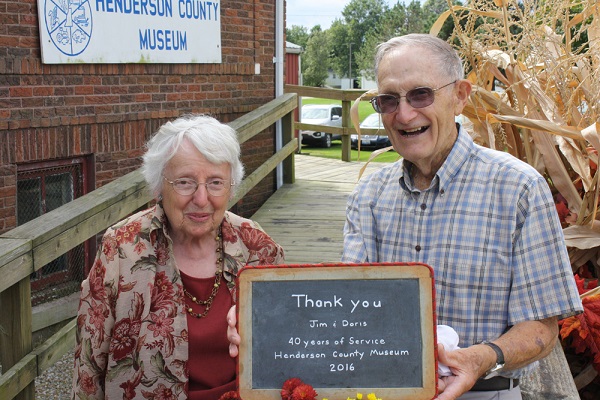 HENDERSON COUNTY
MUSEUM
Thank you
Jim & Doris
40 years of Service
Henderson County Museum
2016